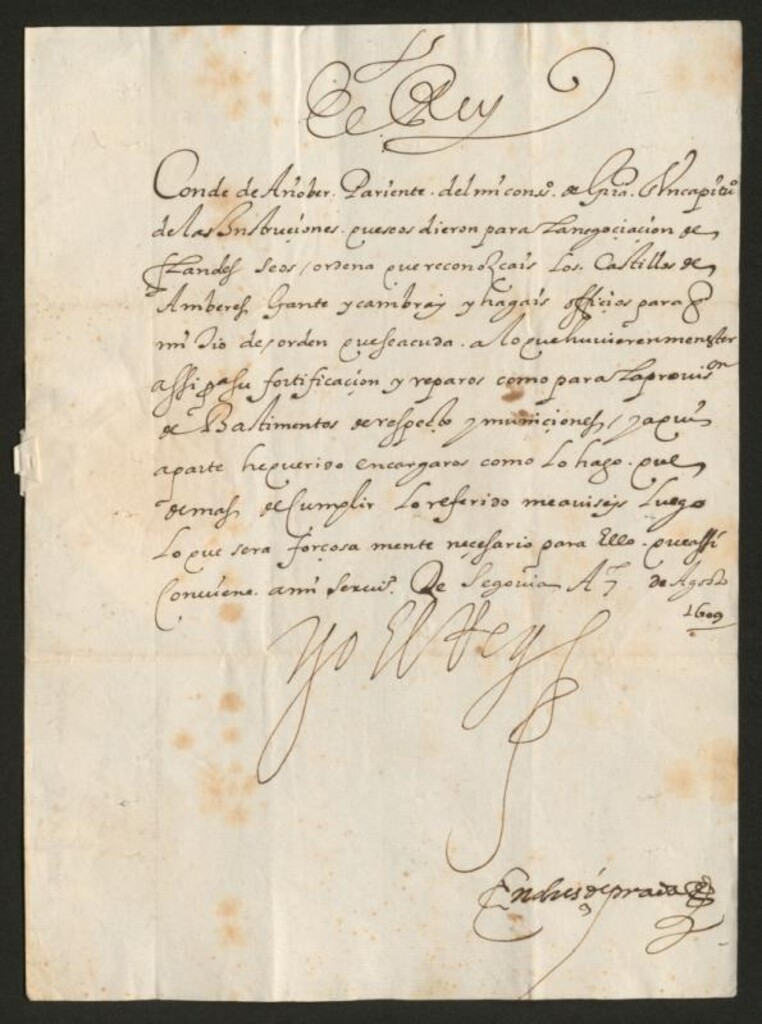 El Rey
Conde de Añober. Pariente. del mi cons.º de Grra. En capitu.º
de las Instruciones. que se os dieron para la negociacion de
Flandes se os / ordena que reconozcais los. Castillos de
Amberes Gante y cambray y hagais officios para q
mi Tio de / orden que se acuda. a lo que huvieren menester
assi pª su fortificacion y reparos como para la provis.on
de Bastimentos de respecto y municiones /
aparte he querido encargaros como lo hago. que
demas de Cumplir lo referido me aviseys luego
lo que sera forçosa mente necessario para Ello. que assi
Conviene. a mi servi.º De Segovia A 7 de Agosto
1609
Yo El Rey
Andres de prada